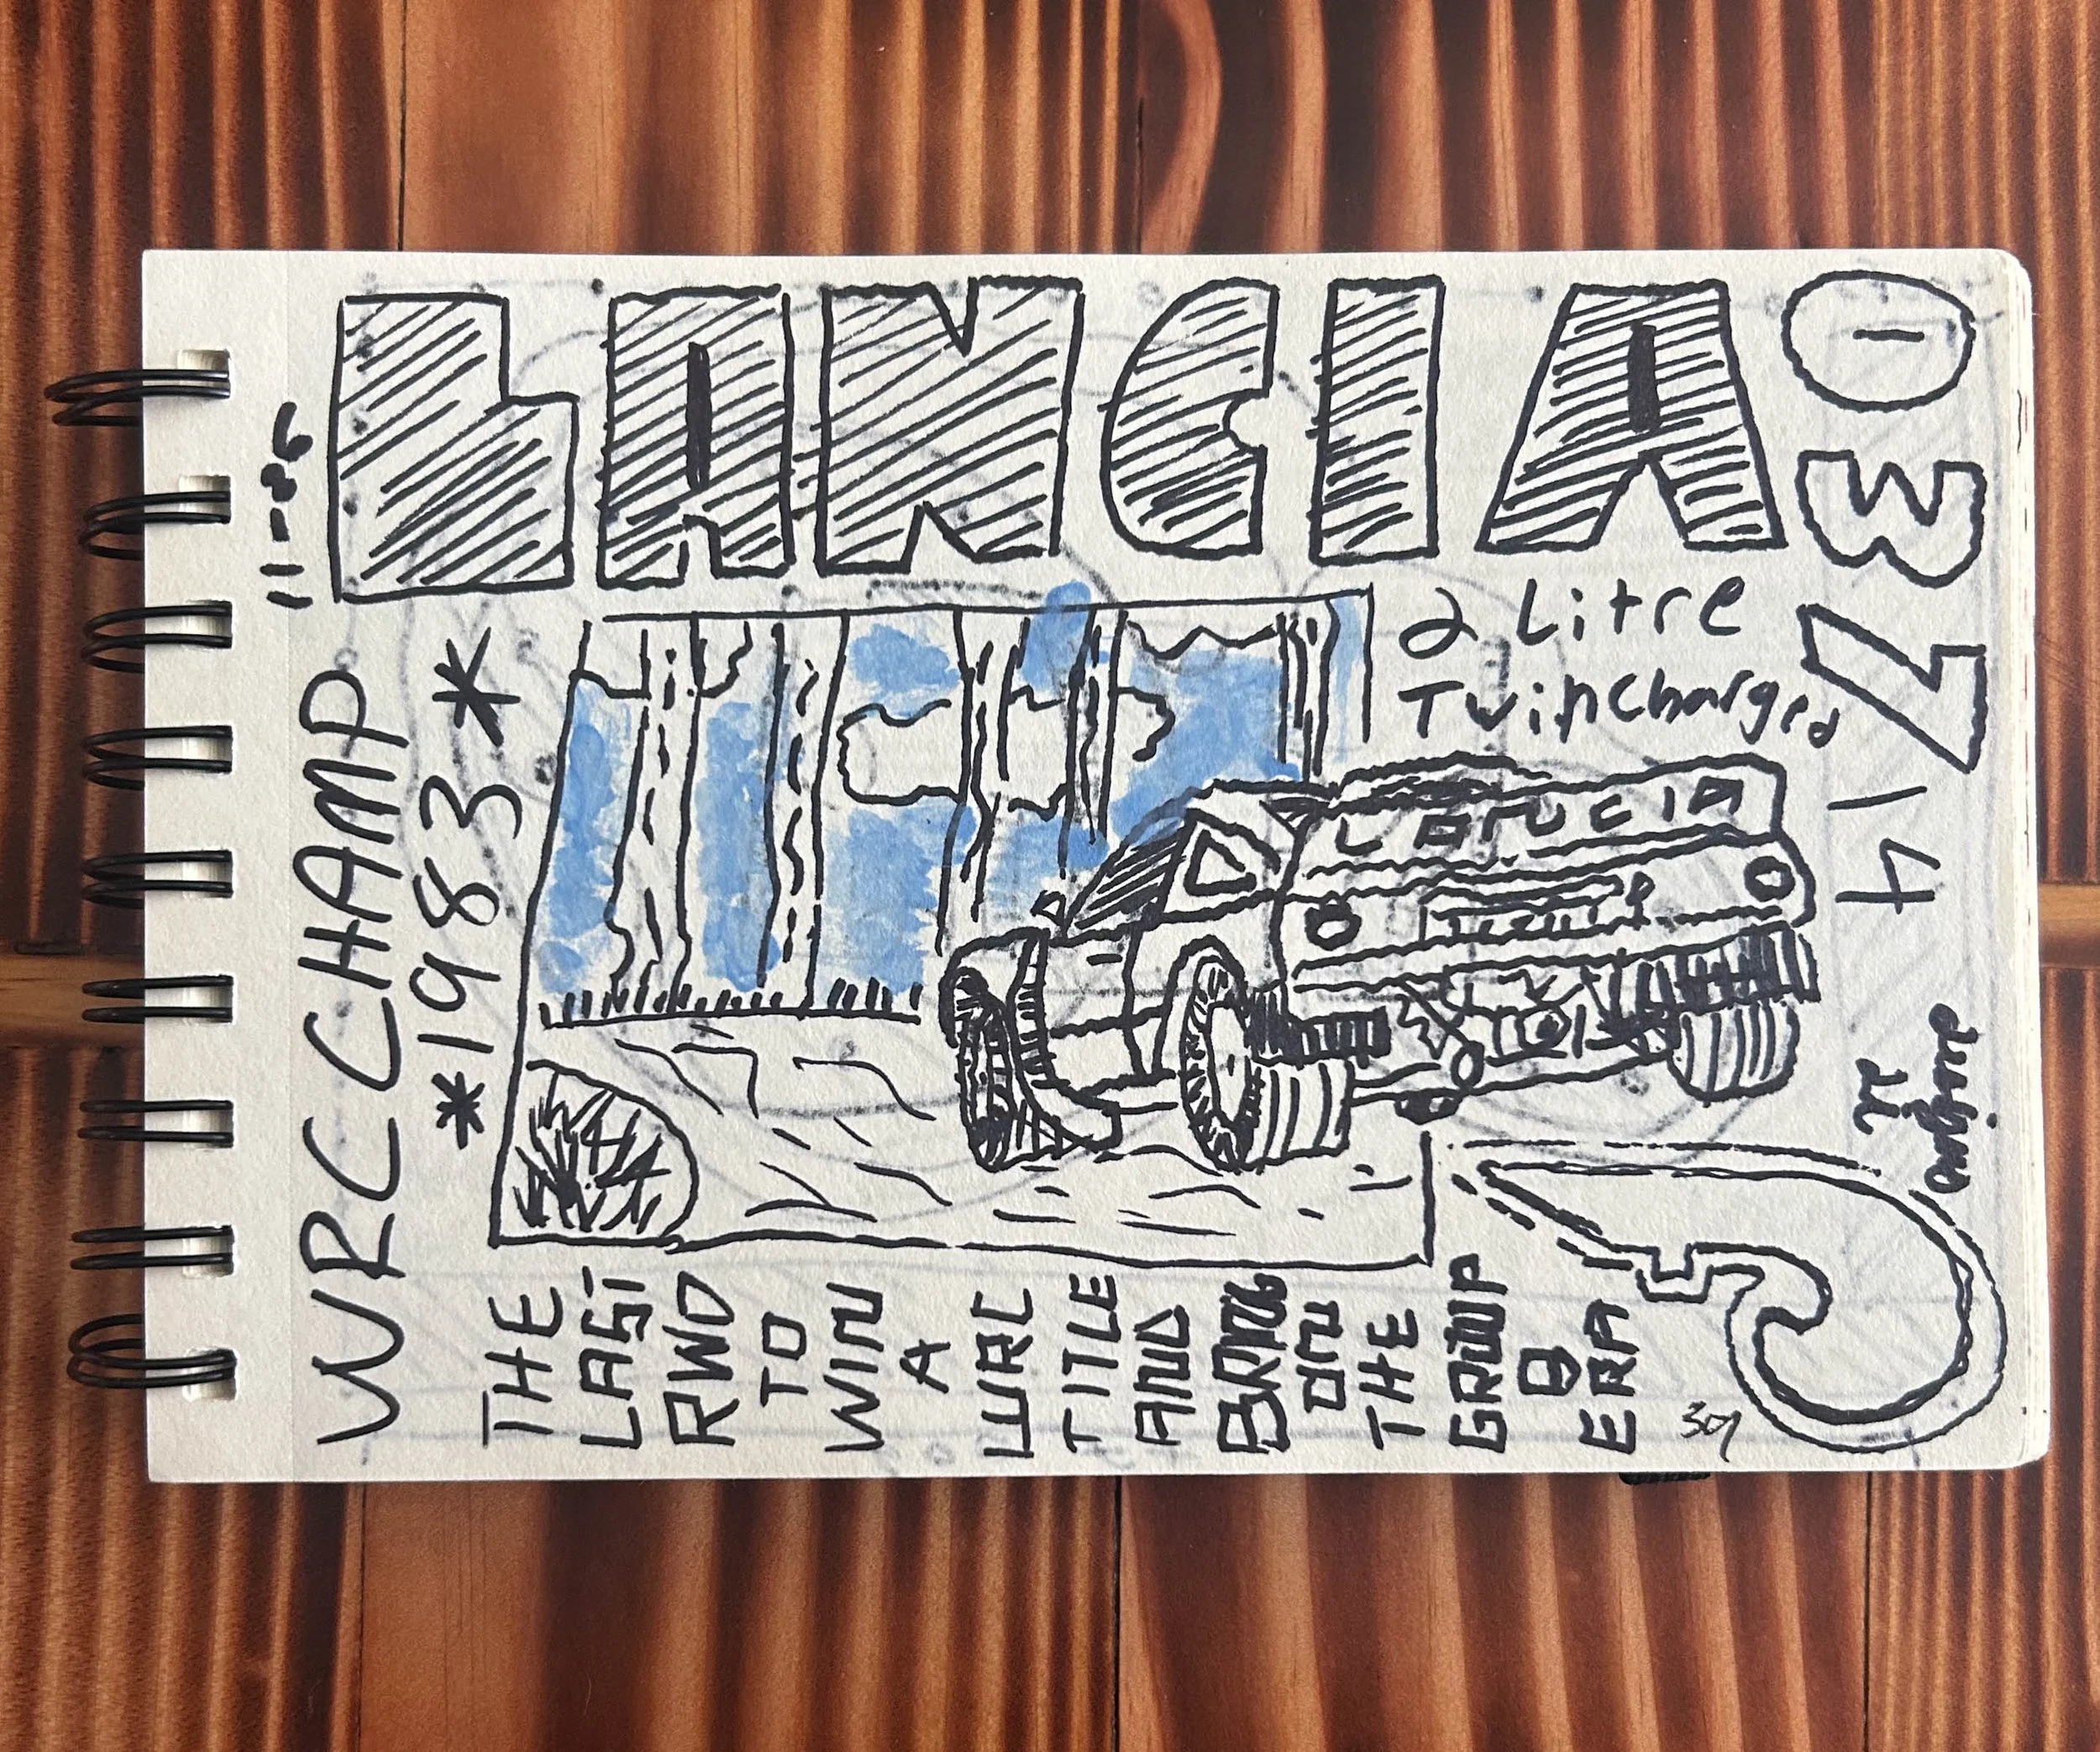 LANCIA
037
2 Litre
Twincharged
WRC CHAMP
*1983*
LANCIA
THE
LAST
RWD
TO
WIN
A
WRC
TITLE
AND
BRING
ON
THE
GROUP
B
ERA